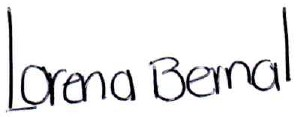 Lorena Bernal